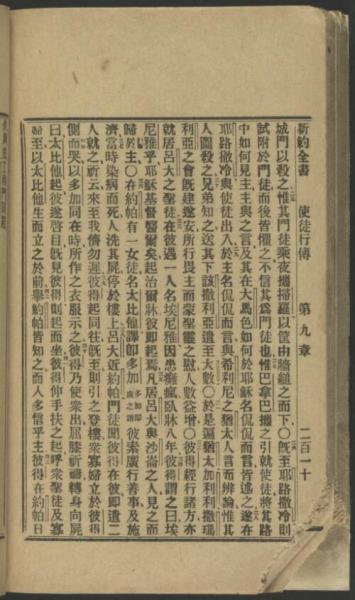 新約全書 使徒行傳 第九章 二百一十
城門以殺之惟其門徒乘夜攜掃羅以筐由牆縋之而下〇既至耶路撒冷則
試附於門徒而後皆懼之不信其爲門徒也惟巴拿巴攜之引就使徒將其路
中如何見主主與之言及其在大馬色如何於耶穌名侃侃而言皆述之遂在
耶路撒冷與使徒出入於主名侃侃而言與希利尼之猶太人言而辨論惟其
人圖殺之兄弟知之送其下該撒利亞遣至大數〇於是徧猶太加利利撒瑪
利亞之會既建遂安所行畏主而蒙聖靈之慰人數益增〇彼得經行諸方亦
就居呂大之聖徒在彼遇一人名埃尼雅因患癱瘋臥牀八年彼得謂之曰埃
尼雅乎耶穌基督醫爾矣起治爾牀彼即起焉凡居呂大與沙崙之人見之而
歸於主〇在約帕有一女徒名太比他譯即多加多加即鹿之謂彼素廣行善事及施
濟當時染病而死人洗其屍停於樓上呂大近約帕門徒聞彼得在彼即遣二
人就之祈云來至我儕勿遲彼得起同往既至則引之登樓衆寡婦立於彼得
側而哭以多加同在時所作之衣服示之彼得乃使衆出屈膝祈禱轉身向屍
曰太比他起彼遂啓目既見彼得則起而坐彼得伸手扶之起呼衆聖徒及寡
婦至以太比他生而立之於前舉約帕皆知之而人多信乎主彼得在約帕日